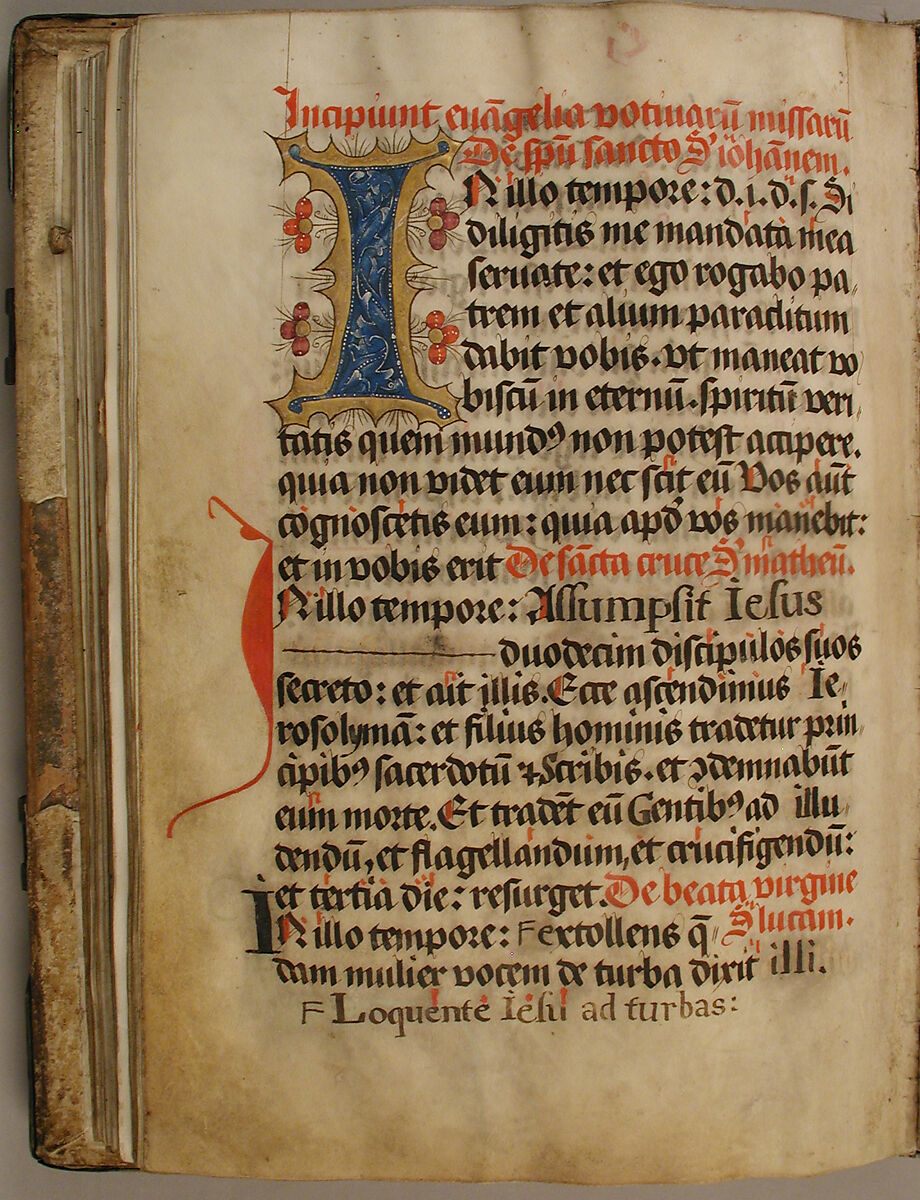 Incipiunt euãgelia votiuarũ missarũ
De spũ sancto S' iohãnem.
IN illo tempore: d.i.d.s. Si
diligitis me mandata mea
seruate: et ego rogabo pa-
trem et alium paraclitum
dabit vobis. vt maneat vo
biscũ in eternũ. spiritũ veri-
tatis quem mundꝰ non potest accipere.
quia non videt eum nec scit eũ Vos aũt
cognoscetis eum: quia apđ vos manebit:
et in vobis erit De sãcta cruce S' matheũ.
IN illo tempore: Assumpsit Iesus
duodecim discipulos suos
secreto: et ait illis. Ecce ascendimus Ie-
rosolymã: et filius hominis tradetur prin-
cipibꝰ sacerdotũ ⁊ Scribis. et ↄdemnabũt
eum morte. Et tradẽt eũ Gentibꝰ ad illu-
dendũ, et flagellandum, et crucifigendũ:
et tertia die: resurget. De beata virgine
IN illo tempore: F extollens q̃- S' lucam.
dam mulier vocem de turba dixit illi.
F Loquente Iesu ad turbas: